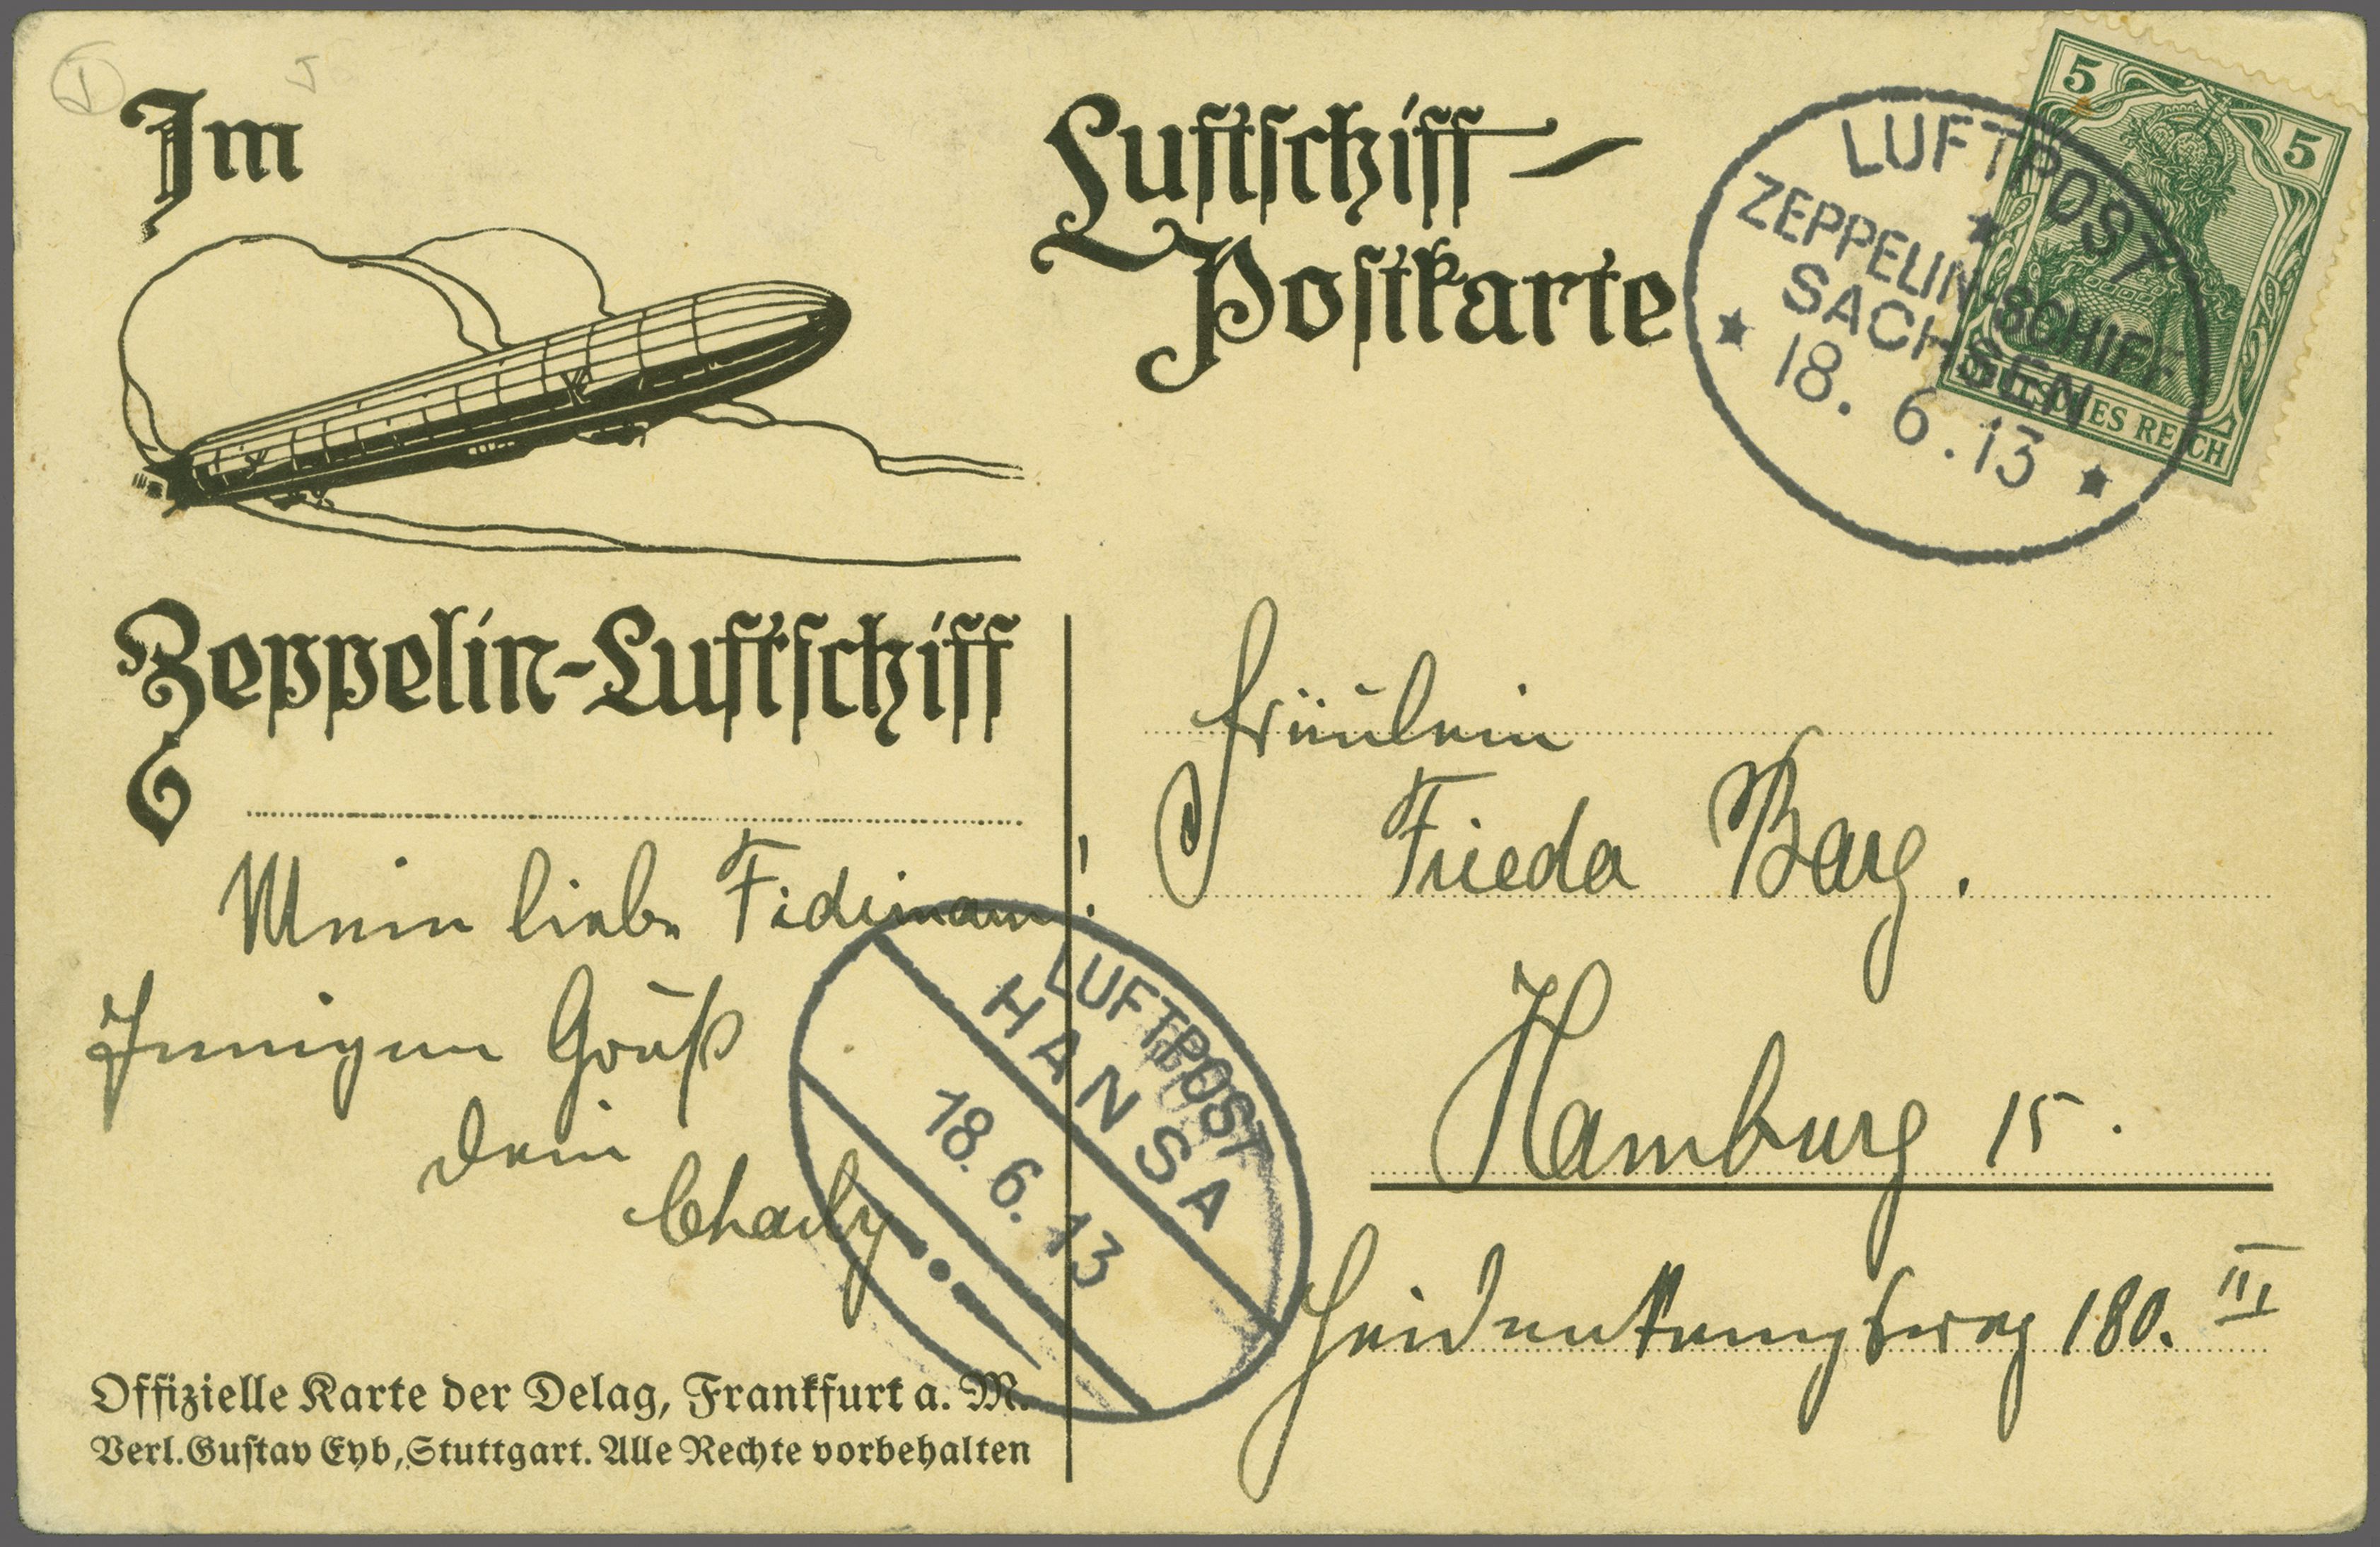 Im
Luftschiff-
Postkarte
5
5
DEUTSCHES REICH
LUFTPOST
ZEPPELIN-SCHIFF
SACHSEN
18. 6. 13
Zeppelin-Luftschiff
Mein liebe Fidimann!
Innigen Gruß
Dein
Charly
LUFTPOST
HANSA
18. 6. 13
Fräulein
Frieda Barg.
Hamburg 15.
Heidenkampsweg 180. III
Offizielle Karte der Delag, Frankfurt a. M.
Verl. Gustav Eyb, Stuttgart. Alle Rechte vorbehalten